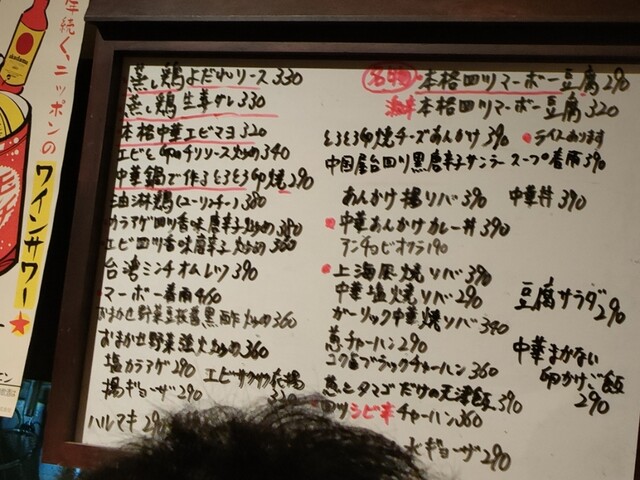 年続く、ニッポンの
ワインサワー
蒸し鶏よだれソース 330
蒸し鶏生姜ダレ 330
本格中華エビマヨ 320
エビと卵のチリソース炒め 340
中華鍋で作るとろとろ卵焼 290
油淋鶏(ユーリンチー) 380
カラアゲ四川香味唐辛子炒め 380
エビ四川香味唐辛子炒め 360
台湾ミンチオムレツ 390
マーボー春雨 460
おまかせ野菜豆鼓醤黒酢炒め 360
おまかせ野菜強火炒め 360
塩カラアゲ 290
エビサクサク衣揚
揚ギョーザ 290
ハルマキ 290
名物 本格四川マーボー豆腐 290
激辛 本格四川マーボー豆腐 320
とろとろ卵焼チーズあんかけ 390
ライスあります
中国屋台四川黒唐辛子サンラースープ春雨 390
あんかけ揚ソバ 390
中華丼 390
中華あんかけカレー丼 390
アンチョビオクラ 190
上海風焼ソバ 390
中華塩焼ソバ 290
ガーリック中華焼ソバ 340
豆腐サラダ 290
葱チャーハン 290
コク旨ブラックチャーハン 360
中華まかない
卵かけご飯
290
葱とタマゴだけの天津飯 390
四川シビ辛チャーハン 360
水ギョーザ 290